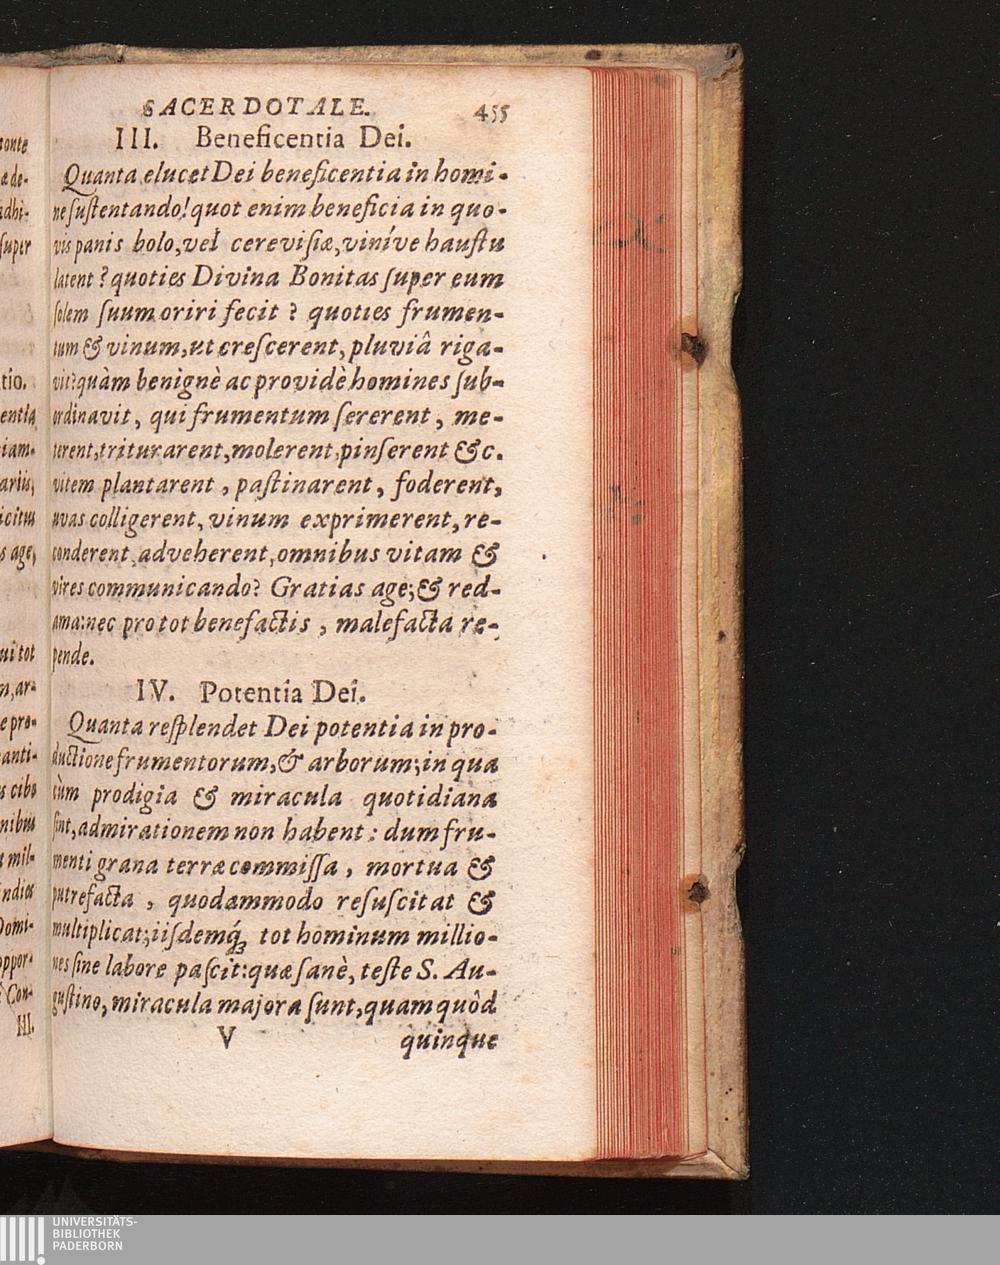 SACERDOTALE. 455
III. Beneficentia Dei.
Quanta elucet Dei beneficentia in homi-
ne ſuſtentando! quot enim beneficia in quo-
vis panis bolo, vel cereviſiæ, viníve hauſtu
latent? quoties Divina Bonitas ſuper eum
ſolem ſuum oriri fecit? quoties frumen-
tum & vinum, ut creſcerent, pluviâ riga-
vit? quàm benignè ac providè homines ſub-
ordinavit, qui frumentum ſererent, me-
terent, triturarent, molerent, pinſerent &c.
vitem plantarent, paſtinarent, foderent,
uvas colligerent, vinum exprimerent, re-
conderent, adveherent, omnibus vitam &
vires communicando? Gratias age; & red-
ama: nec pro tot benefactis, malefacta re-
pende.
IV. Potentia Dei.
Quanta reſplendet Dei potentia in pro-
ductione frumentorum, & arborum; in qua
cùm prodigia & miracula quotidiana
ſint, admirationem non habent: dum fru-
menti grana terræ commiſſa, mortua &
putrefacta, quodammodo reſuſcitat &
multiplicat; iiſdemq́ꝫ tot hominum millio-
nes ſine labore paſcit: quæ ſanè, teſte S. Au-
guſtino, miracula majora ſunt, quam quòd
V quinque
UNIVERSITÄTS-
BIBLIOTHEK
PADERBORN